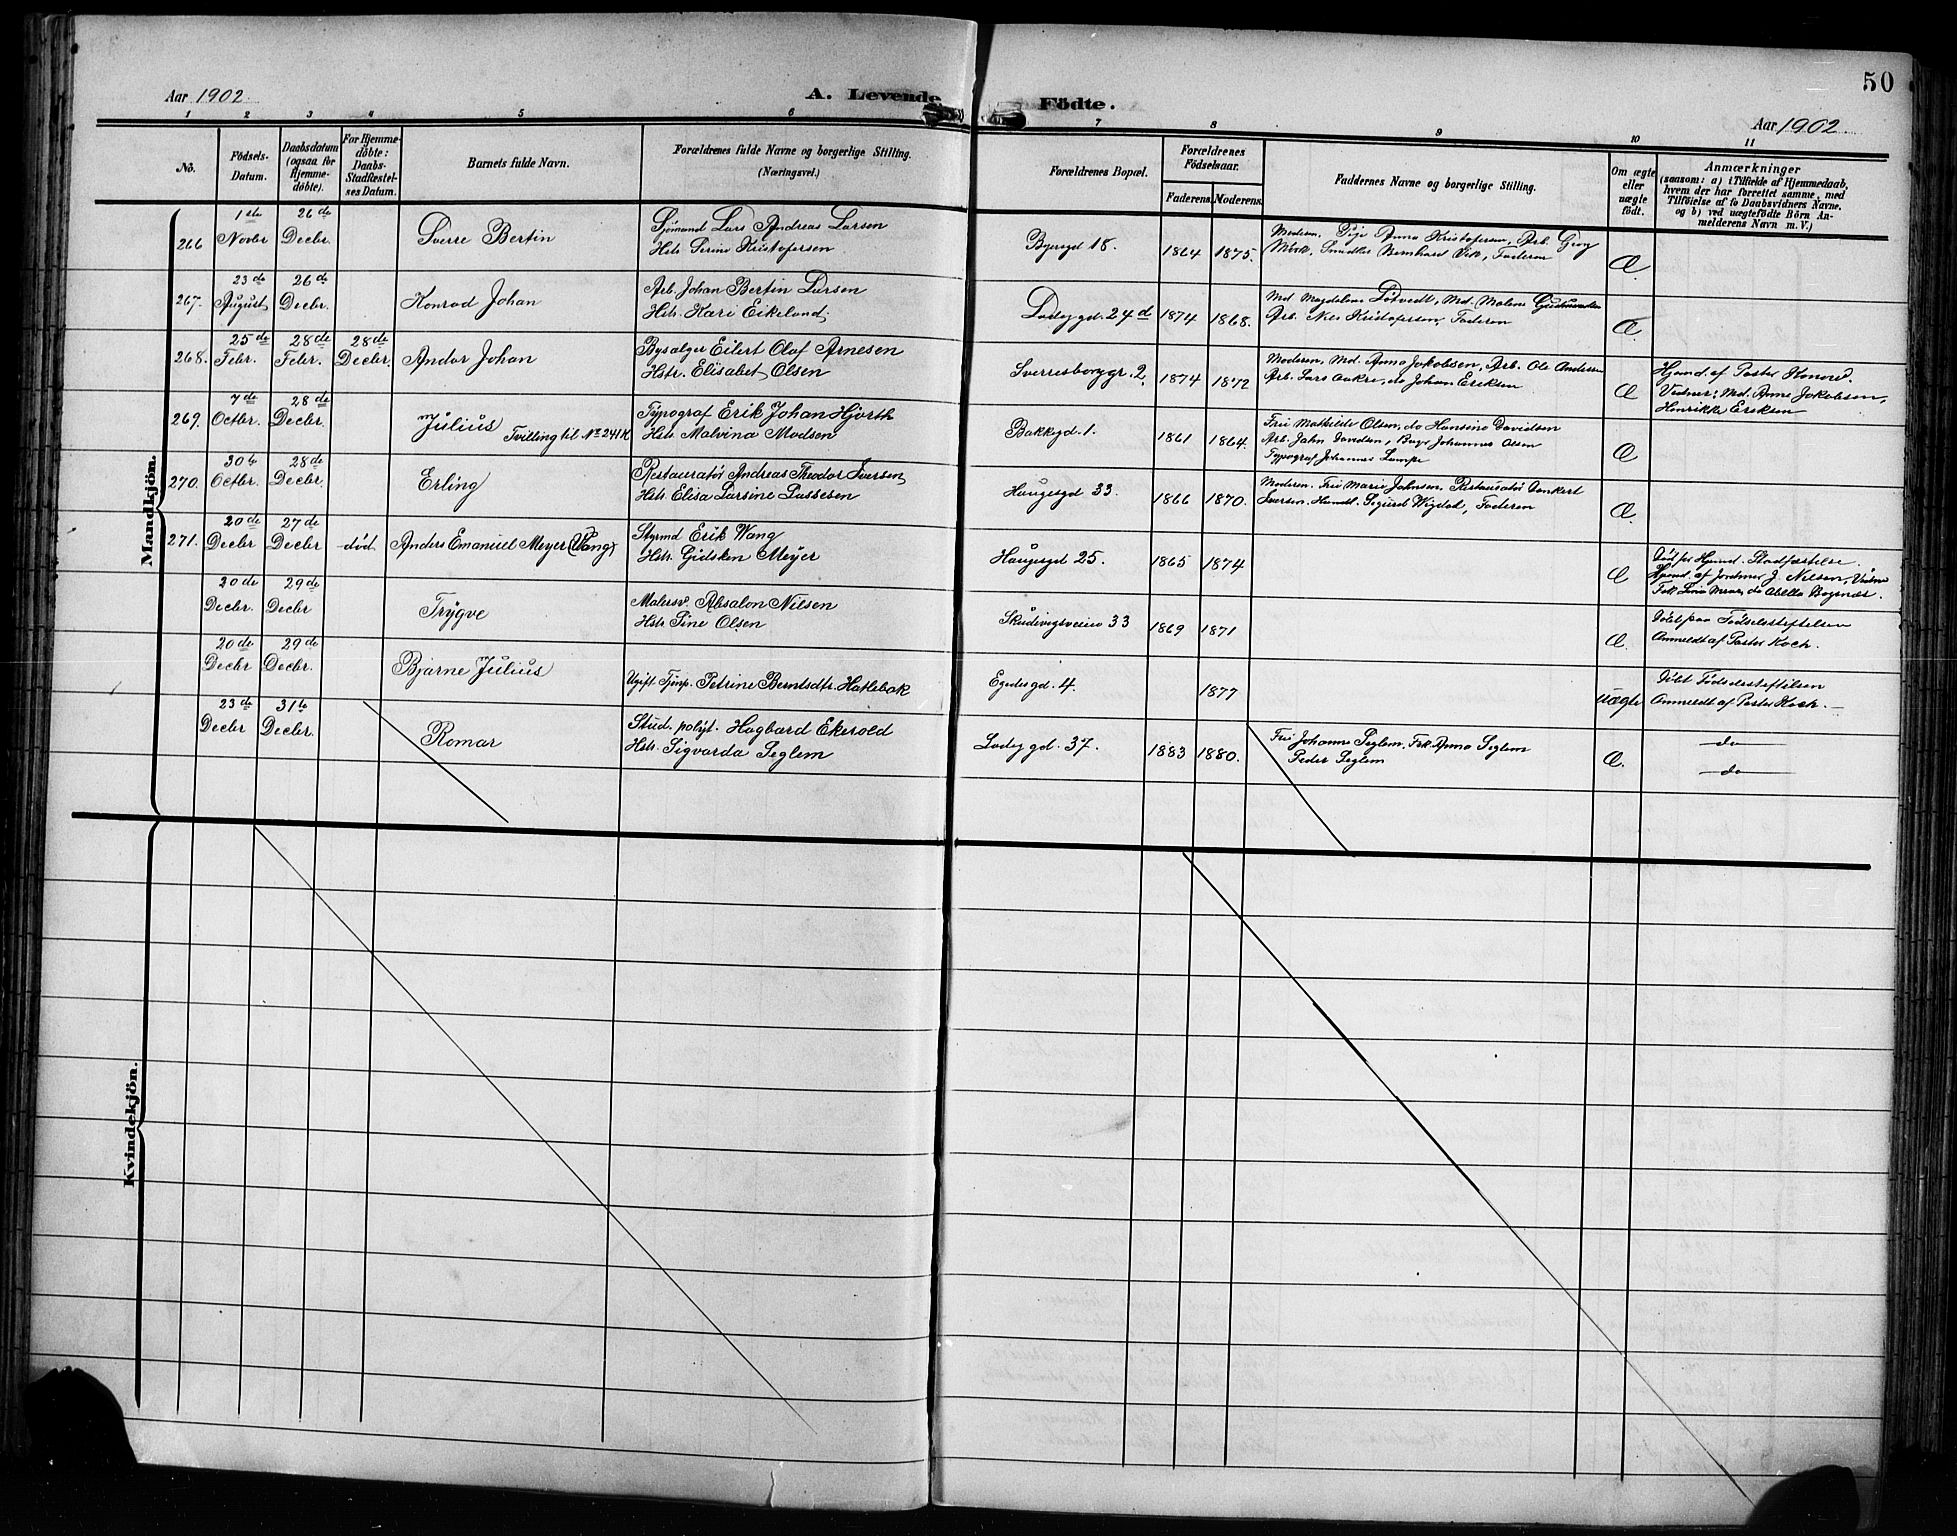 50
Aar 1902.
A. Levende Födte.
Aar 1902.
1 2 3 4 5 6 7 8 9 10 11
No.
Födsels-Datum.
Daabsdatum (ogsaa for Hjemme-döbte).
For Hjemme-döbte: Daabs-Stadfæstel-ses Datum.
Barnets fulde Navn.
Forældrenes fulde Navne og borgerlige Stilling.
(Næringsvei.)
Forældrenes Bopæl.
Forældrenes Födselsaar.
Faderens. Moderens.
Faddernes Navne og borgerlige Stilling.
Om ægte eller uægte födt.
Anmærkninger
(saasom: a) i Tilfælde af Hjemmedaab,
hvem der har forrettet samme, med
Tilföielse af to Daabsvidners Navne.
og b) ved uægtefödte Börn An-
melderens Navn m. V.)
Mandkjön.
266 1ste Novbr 26de Decbr. Sverre Bertin
Sjömand Lars Andreas Larsen
Hstr. Serine Kristofersen
Byersgd 18. 1864 1875.
Moderen, Pige Anna Kristofersen, Arb. Georg
Monk, Smedlr. Bernhard Vik, Faderen
Æ
267. 23de August 26de Decbr. Konrad Johan
Arb. Johan Bertin Larsen
Hstr. Kari Eikeland.
Ladegd. 24d 1874 1868.
Md Magdalene Lötvedt, Md. Malene
Arb. Nils Kristofersen, Faderen
Æ.
268. 25de Febr. 28de Febr. 28de Decbr. Andor Johan
Bysælger Eilert Olaf Arnesen
Hstr. Elisabet Olsen
Sverresborggr. 2. 1874 1872
Moderen, Md. Anna Jakobsen, Arb. Ole Andersen
Arb. Lars Aakre, do Johan Eriksen
Æ
Hjemd. af Pastor Konow.
Vidner: Md. Anna Jakobsen,
Henrikke Eriksen
269. 7de Octbr. 28de Decbr. Julius Tvilling til No 241 K
Typograf Erik Johan Hjorth
Hstr. Malvina Madsen
Bakkegd. 1. 1861 1864.
Fru Mathilde Olsen, do Hansine Davidsen
Arb. John Davidsen, Bager Johannes Olsen
Typograf Johannes Lampe
Æ
270. 30te Octbr. 28de Decbr. Erling
Restauratør Andreas Theodor Iversen
Hstr. Elisa Larsine Lassesen
Haugesgd 33. 1866 1870.
Moderen. Fru Marie Johnsen. Restauratør Annkert
Iversen. Handl. Sigurd Wigdal, Faderen
Æ.
271. 20de Decbr 27de Decbr død Anders Emanuel Meyer (Wang)
Styrmd Erik Wang
Hstr. Gidsken Meyer
Haugesgd 25. 1865 1874
Æ
Död før Hjemd. Stadfæstelse.
Hjemd. af Jordmor J. Nielsen, Vidner
20de Decbr. 29de Decbr Trygve
Malersv. Absalon Nilsen
Hstr. Sine Olsen
Skudevigsveien 33 1869 1871
Æ.
Döbt paa Fødselsstiftelsen
Anmeldt af Pastor Koch.
20de Decbr. 29de Decbr. Bjarne Julius
Ugift Tjnp. Petrine Berntsdtr. Hatlebak
Egedesgd. 4. 1877
uægte
Döbt Fødselsstiftelsen
Anmeldt af Pastor Koch. —
23de Decbr 31te Decbr. Romar
Stud. polyt. Hagbard Ekerold
Hstr. Sigvarda Seglem
Ladegd. 37. 1883 1880.
Fru Johanne Seglem. Frk. Anna Seglem
Peder Seglem
Æ.
— do —
— do —
Kvindekjön.